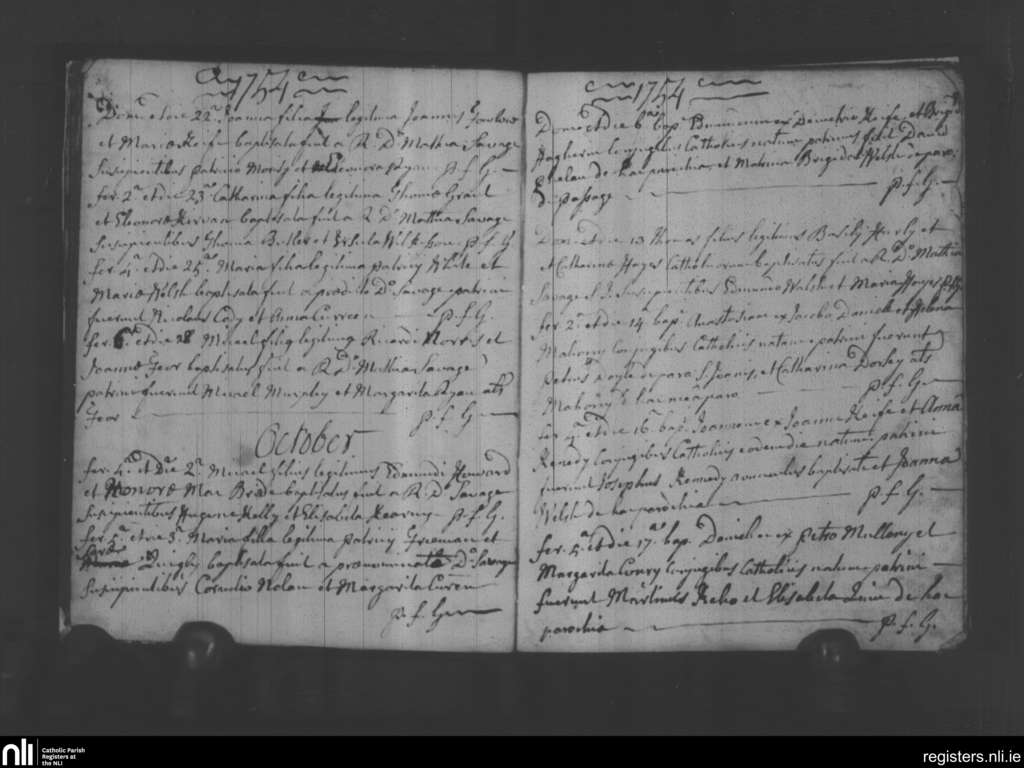 1754
Dom. et die 22ª Joanna filia legitima Joannis
et Mariæ Keife baptisata fuit a R. Dº Mathia Savage
Suscipientibus patricio et Eleonora Ryan p. f. G.
fer. 2ª et die 23ª Catharina filia legitima Thomæ Grant
et Eleonoræ Kirwan baptisata fuit a R. Dº Mathia Savage
Suscipientibus Thoma Butler et Ursula p. f. G.
fer. 4ª et die 25ª Maria filia legitima patricij White et
Mariæ Welsh baptisata fuit a prædicto Dº Savage patrini
fuerunt Nicolaus Cody et Anna Curreen p. f. G.
fer. 6ª et die 28 legitimus Ricardi Norris et
Joannæ Geor baptisatus fuit a R. Dº Mathia Savage
patrini fuerunt Murphy et Margarita Ryan als
Geor p. f. G.
October
fer. 4ª et Die 2ª filius legitimus Edmundi
et Honoræ Mac Bride baptisatus fuit a R. Dº Savage
Suscipientibus Eugene Kelly et Elisabeta Kearny p. f. G.
fer. 5ª et die 3ª Maria filia legitima patricij et
Quigly baptisata fuit a pronominato Dº Savage
Suscipientibus Cornelio Nolan et Margarita Cureen
p. f. G.
1754
Dom. et die 6ª bap. ex Demetrio Keife et
conjugibus Catholicis natum patrinus fuit David
Phelan de hac parochia, et Matrina Brigida Welsh a paro.
de passage p. f. G.
Dom. et die 13 Thomas filius legitimus Basilij Hurly et
et Catharinæ Hayes Catholicorum baptisatus fuit a R. Dº Mathia
Savage S. J. Suscipientibus Edmundo Welsh et Maria Hayes p. f. G.
fer. 2ª et die 14ª bap. Anastasiam ex Jacobo Daniell et Helena
Mahony conjugibus Catholicis natam patrini fuerunt
Petrus Doyle a paro. S. Joannis, et Catharina Dorsey als
Mahony de hac mea paro. p. f. G.
fer. 4ª et die 16 bap. Joannem ex Joanne Keife et Anna
Kenedy conjugibus Catholicis eodem die natum patrini
fuerunt Josephus Kennedy avunculus baptisati et Joanna
Welsh de hac parochia p. f. G.
fer. 5ª et die 17ª bap. Danielem ex Petro Mullony et
Margarita Conry conjugibus Catholicis natum patrini
fuerunt Martinus Keho et Elisabeta Quin de hac
parochia p. f. G.
nli Catholic Parish
Registers at
the NLI
registers.nli.ie